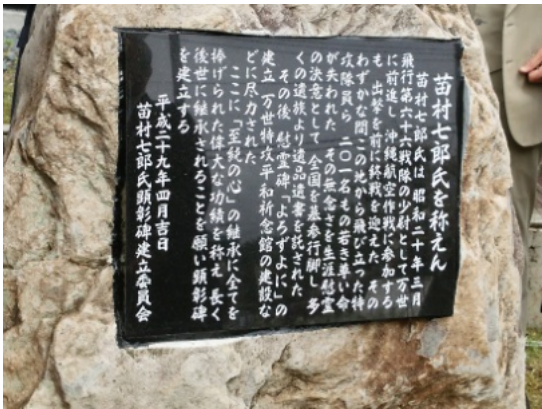 苗村七郎氏を称えん
苗村七郎氏は 昭和二十年三月
飛行第六十六戦隊の少尉として万世
に前進し 沖縄航空作戦に参加する
も 出撃を前に終戦を迎えた その
わずかな間この地から飛び立った特
攻隊員ら 二〇一名もの若き尊い命
が失われた その無念さを生涯慰霊
の決意として 全国を墓参行脚し 多
くの遺族より遺品遺書を託された
その後 慰霊碑「よろずよに」の
建立 万世特攻平和祈念館の建設な
どに尽力された
ここに「至純の心」の継承に全てを
捧げられた偉大な功績を称え 長く
後世に継承されることを願い顕彰碑
を建立する
平成二十九年四月吉日
苗村七郎氏顕彰碑建立委員会